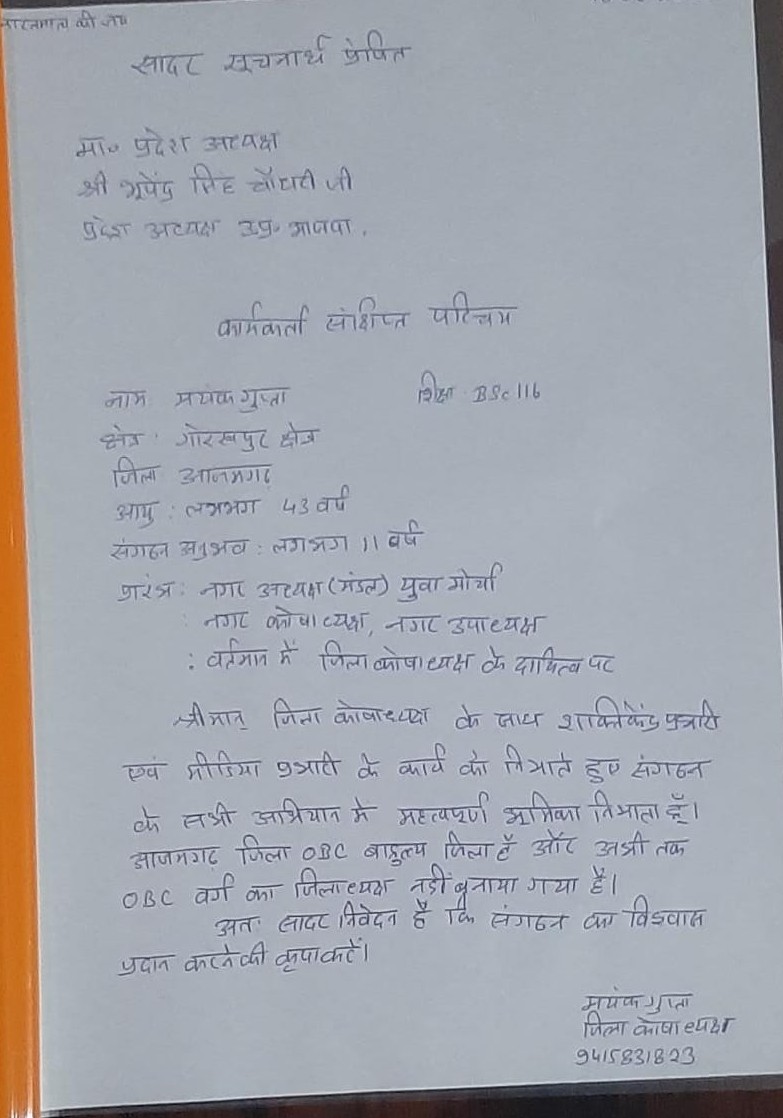 भारतमाता की जय
सादर सूचनार्थ प्रेषित
मा० प्रदेश अध्यक्ष
श्री भूपेंद्र सिंह चौधरी जी
प्रदेश अध्यक्ष उ०प्र० भाजपा.
कार्यकर्ता संक्षिप्त परिचय
नाम: मयंक गुप्ता शिक्षा: BSc
क्षेत्र: गोरखपुर क्षेत्र
जिला आजमगढ़
आयु: लगभग 43 वर्ष
संगठन अनुभव: लगभग 11 वर्ष
प्रारंभ: नगर अध्यक्ष (मंडल) युवा मोर्चा
: नगर कोषाध्यक्ष, नगर उपाध्यक्ष
: वर्तमान में जिला कोषाध्यक्ष के दायित्व पर
श्रीमान् जिला कोषाध्यक्ष के साथ शक्तिकेंद्र प्रभारी
एवं मीडिया प्रभारी के कार्य को निभाते हुए संगठन
के सभी अभियान में महत्वपूर्ण भूमिका निभाता हूँ।
आजमगढ़ जिला OBC बाहुल्य जिला है और अभी तक
OBC वर्ग का जिलाध्यक्ष नहीं बनाया गया है।
अतः सादर निवेदन है कि संगठन का विश्वास
प्रदान करने की कृपा करें।
मयंक गुप्ता
जिला कोषाध्यक्ष
9415831823